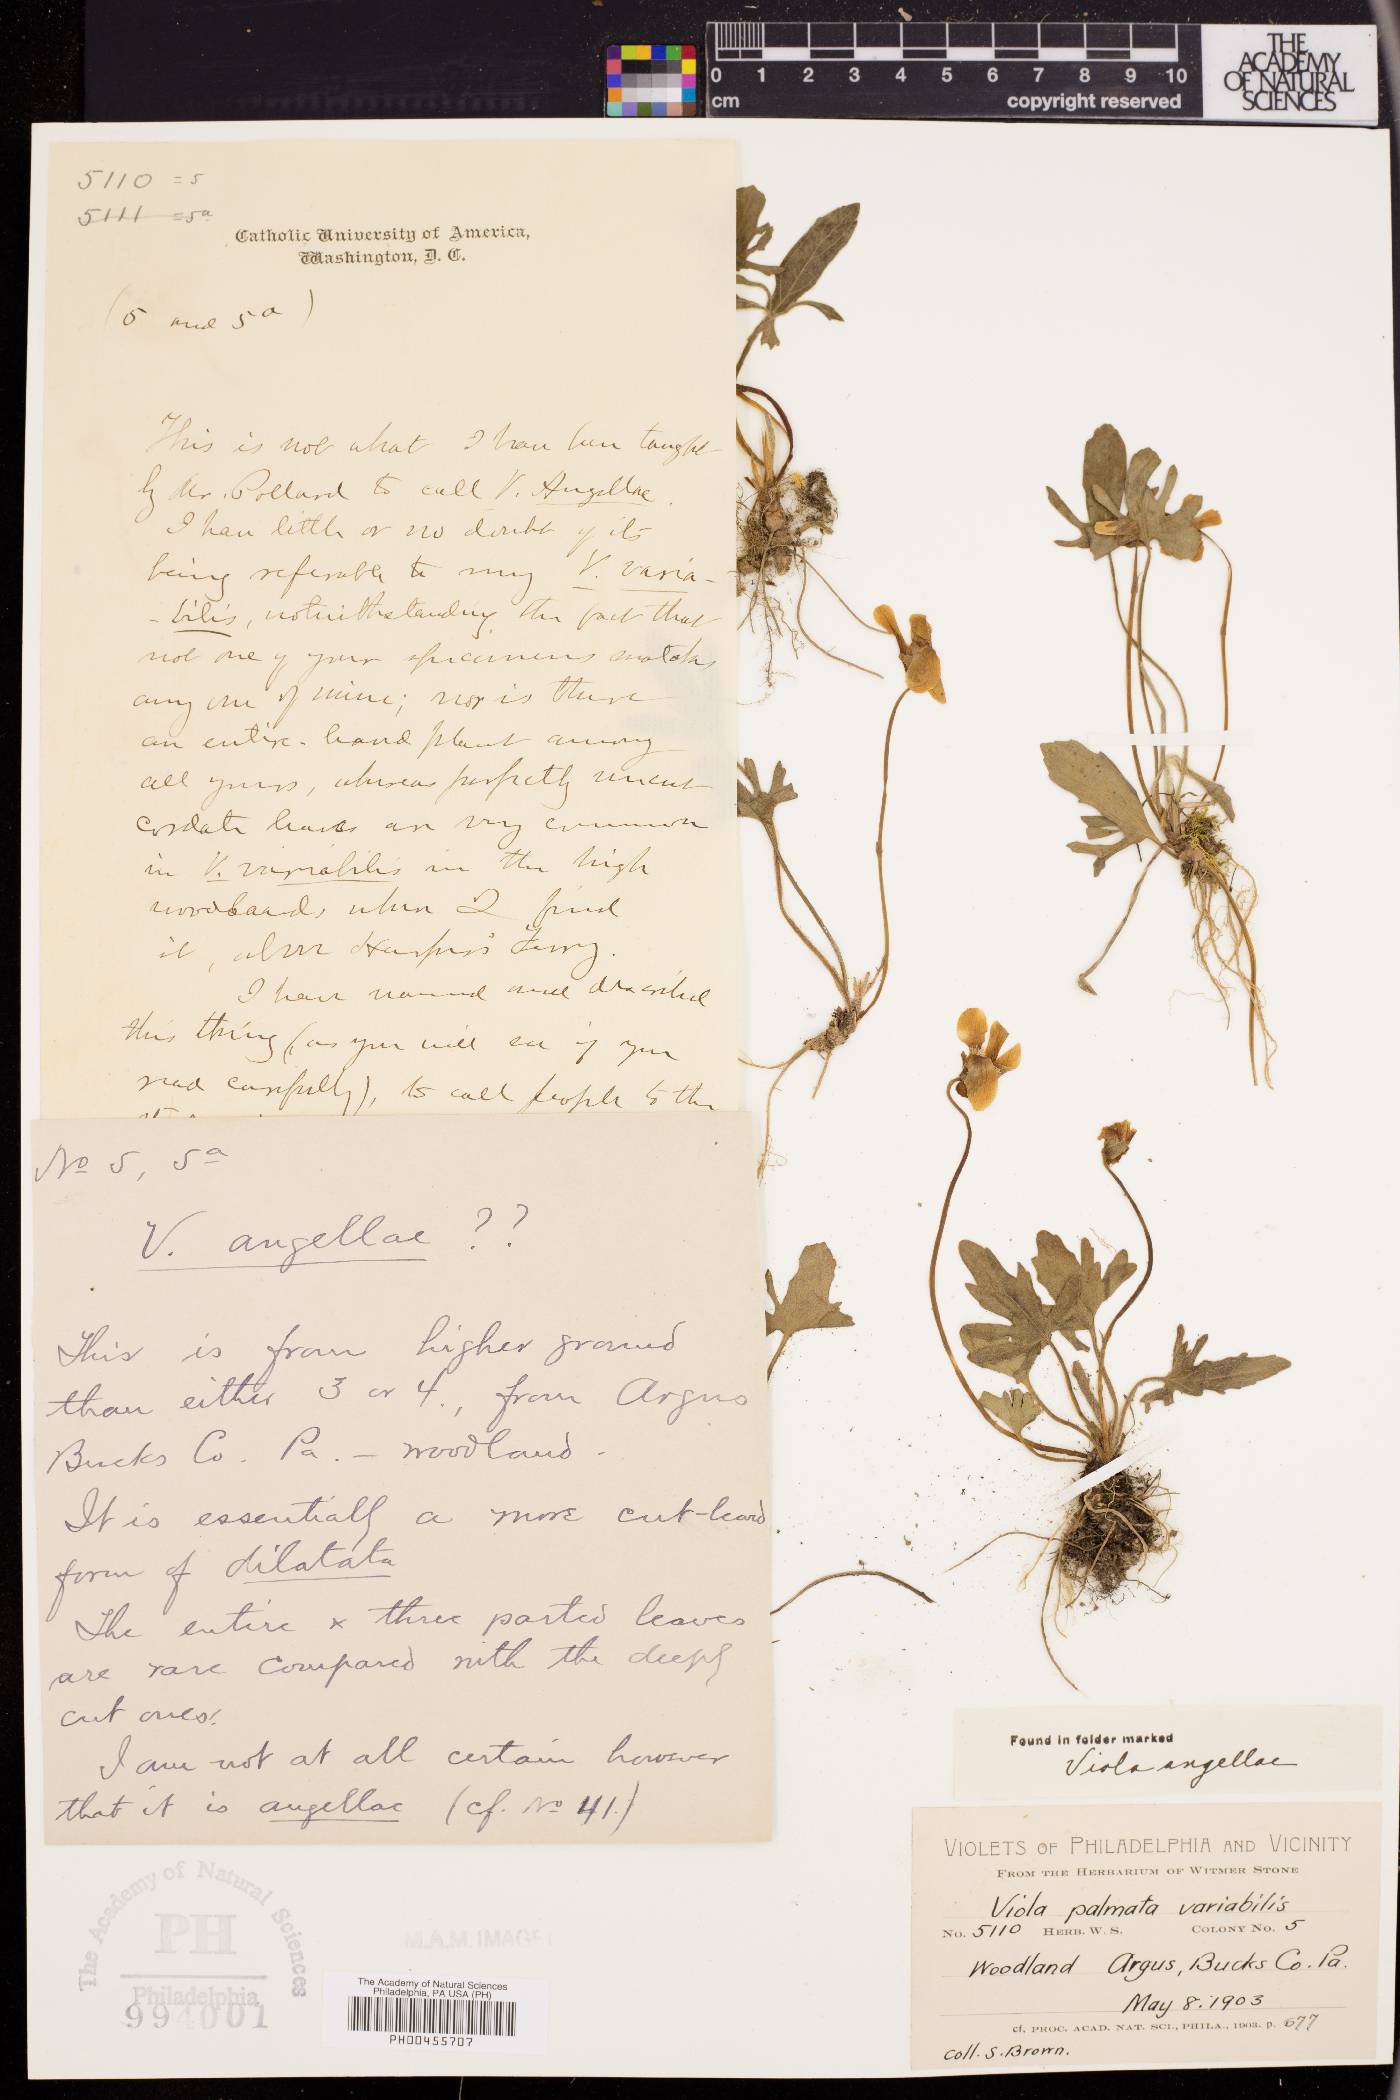 0 1 2 3 4 5 6 7 8 9 10
cm copyright reserved
THE
ACADEMY
OF NATURAL
SCIENCES
5110 = 5
5111 = 5a
Catholic University of America,
Washington, D. C.
(5 and 5a)
This is not what I have been taught
by Mr. Pollard to call V. Angellae.
I have little or no doubt of its
being referable to my V. varia-
-bilis, notwithstanding the fact that
not one of your specimens matches
any one of mine; nor is there
an entire-leaved plant among
all yours, whereas perfectly uncut
cordate leaves are very common
in V. variabilis in the high
woodlands when I find
it, above Harper's Ferry.
I have named and described
this thing (as you will see if you
read carefully), to call people to the
No 5, 5a
V. angellae ??
This is from higher ground
than either 3 or 4., from Argus
Bucks Co. Pa. – woodland.
It is essentially a more cut-leavd
form of dilatata
The entire & three parted leaves
are rare compared with the deeply
cut ones.
I am not at all certain however
that it is angellae (cf. No 41.)
Found in folder marked
Viola angellae
VIOLETS OF PHILADELPHIA AND VICINITY
FROM THE HERBARIUM OF WITMER STONE
Viola palmata variabilis
No. 5110 HERB. W. S. COLONY No. 5
Woodland Argus, Bucks Co. Pa.
May 8. 1903
cf. PROC. ACAD. NAT. SCI., PHILA., 1903. p. 677
Coll. S. Brown.
The Academy of Natural Sciences
PH
Philadelphia
994001
M.A.M. IMAGE
The Academy of Natural Sciences
Philadelphia, PA USA (PH)
PH00455707